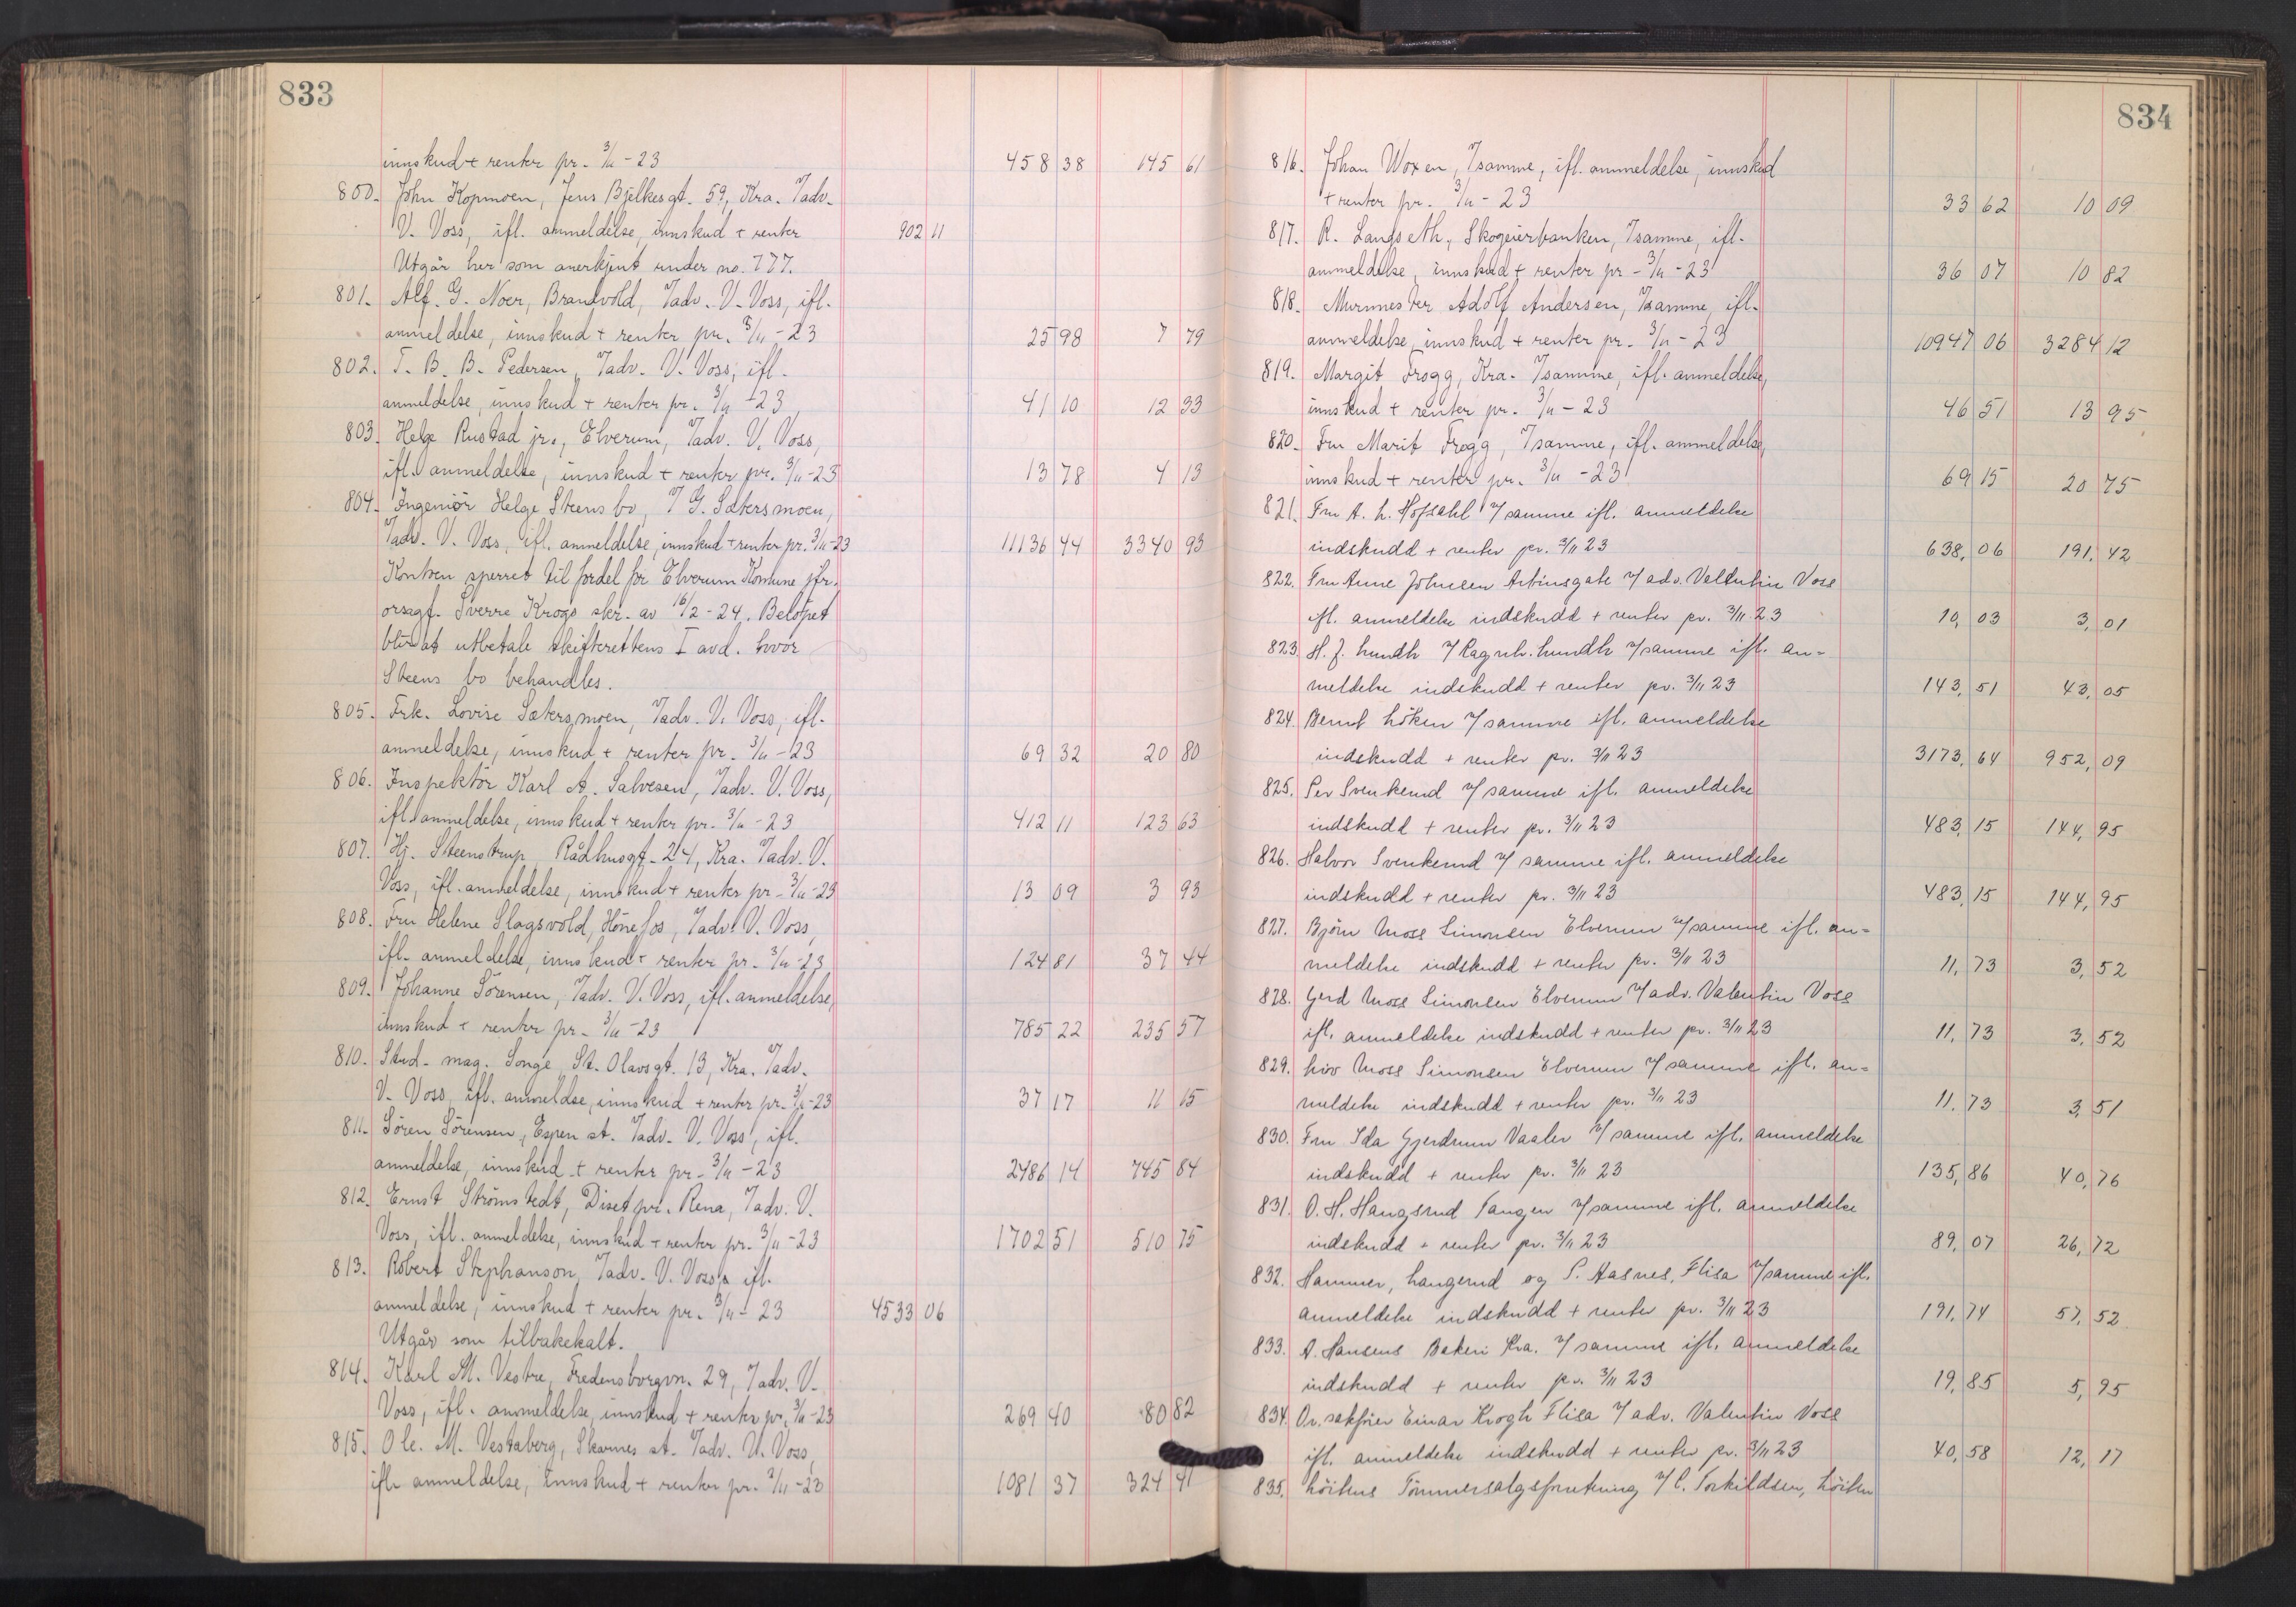 833
innskud + renter pr. 3/11 - 23 458 38 145 61
800. John Kopmoen, Jens Bjelkesgt. 59, Kra. 7adv.
V. Voss, ifl. anmeldelse, innskud + renter 902 11
Utgår her som anerkjent under no. 777.
801. Alf. G. Noer, Brandvold, 7adv. V. Voss, ifl.
anmeldelse, innskud + renter pr. 3/11 - 23 25 98 7 79
802. T. B. B. Pedersen, 7adv. V. Voss, ifl.
anmeldelse, innskud + renter pr. 3/11 - 23 41 10 12 33
803. Helge Rustad jr., Elverum, 7adv. V. Voss,
ifl. anmeldelse, innskud + renter pr. 3/11 - 23 13 78 4 13
804. Ingeniör Helge Steens bo, 7 G. Sætersmoen,
7adv. V. Voss, ifl. anmeldelse, innskud + renter pr. 3/11 - 23 11136 44 3340 93
Kontoen sperret til fordel for Elverum Komune jfr.
orsagf. Sverre Krogs skr. av 16/2 - 24. Belöpet
blir at utbetale skifterettens I avd. hvor
Steens bo behandles.
805. Frk. Lovise Sætersmoen, 7adv. V. Voss, ifl.
anmeldelse, innskud + renter pr. 3/11 - 23 69 32 20 80
806. Inspektör Karl A. Salvesen, 7adv. V. Voss,
ifl. anmeldelse, innskud + renter pr. 3/11 - 23 412 11 123 63
807. Hj. Steenstrup, Rådhusgt. 24, Kra. 7adv. V.
Voss, ifl. anmeldelse, innskud + renter pr. 3/11 - 23 13 09 3 93
808. Fru Helene Slagsvold, Hönefos, 7adv. V. Voss,
ifl. anmeldelse, innskud + renter pr. 3/11 - 23 124 81 37 44
809. Johanne Sörensen, 7adv. V. Voss, ifl. anmeldelse,
innskud + renter pr. 3/11 - 23 785 22 235 57
810. Stud. mag. Songe, St. Olavsgt. 13, Kra. 7adv.
V. Voss, ifl. anmeldse, innskud + renter pr. 3/11 - 23 37 17 11 15
811. Sören Sörensen, Espen st. 7adv. V. Voss, ifl.
anmeldelse, innskud + renter pr. 3/11 - 23 2486 14 745 84
812. Ernst Strömstedt, Diset pr. Rena, 7adv. V.
Voss, ifl. anmeldelse, innskud + renter pr. 3/11 - 23 1702 51 510 75
813. Robert Stephanson, 7adv. V. Voss, ifl.
anmeldelse, innskud + renter pr. 3/11 - 23 4533 06
Utgår som tilbakekalt.
814. Karl M. Vestre, Fredensborgvn. 29, 7adv. V.
Voss, ifl. anmeldelse, innskud + renter pr. 3/11 - 23 269 40 80 82
815. Ole. M. Vestaberg, Skarnes st. 7adv. V. Voss,
ifl. anmeldelse, innskud + renter pr. 3/11 - 23 1081 37 324 41
834
816. Johan Woxen, 7samme, ifl. anmeldelse, innskud
+ renter pr. 3/11 - 23 33 62 10 09
817. R. Langseth, Skogeierbanken, 7samme, ifl.
anmeldelse, innskud + renter pr - 3/11 - 23 36 07 10 82
818. Murmester Adolf Andersen, 7samme, ifl.
anmeldelse, innskud + renter pr. 3/11 - 23 10947 06 3284 12
819. Margit Frogg, Kra. 7samme, ifl. anmeldelse,
innskud + renter pr. 3/11 - 23 46 51 13 95
820. Fru Marit Frogg, 7samme, ifl. anmeldelse,
innskud + renter pr. 3/11 - 23 69 15 20 75
821. Fru A. L. Hofsahl 7/samme ifl. anmeldelse
indskudd + renter pr. 3/11 23 638,06 191,42
822. Fru Anne Johnsen Arbinsgate 7/adv. Valentin Voss
ifl. anmeldelse indskudd + renter pr. 3/11 23 10,03 3,01
823. H. J. Lundh 7/Ragnh. Lundh 7/samme ifl. an=
meldelse indskudd + renter pr. 3/11 23 143,51 43,05
824. Bernt Löken 7/samme ifl. anmeldelse
indskudd + renter pr. 3/11 23 3173,64 952,09
825. Per Svenkerud 7/samme ifl. anmeldelse
indskudd + renter pr. 3/11 23 483,15 144,95
826. Halvor Svenkerud 7/samme ifl. anmeldelse
indskudd + renter pr. 3/11 23 483,15 144,95
827. Björn Moss Simonsen Elverum 7/samme ifl. an=
meldelse indskudd + renter pr. 3/11 23 11,73 3,52
828. Gerd Moss Simonsen Elverum 7/adv. Valentin Voss
ifl. anmeldelse indskudd + renter pr. 3/11 23 11,73 3,52
829. Liv Moss Simonsen Elverum 7/samme ifl. an=
meldelse indskudd + renter pr. 3/11 23 11,73 3,51
830. Fru Ida Gjerdrum Vaaler 7/samme ifl. anmeldelse
indskudd + renter pr. 3/11 23 135,86 40,76
831. O. H. Haugsrud Tangen 7/samme ifl. anmeldelse
indskudd + renter pr. 3/11 23 89,07 26,72
832. Hammer, Langerud og P. Aasnes, Flisa 7/samme ifl.
anmeldelse indskudd + renter pr. 3/11 23 191,74 57,52
833. A. Hansens Bakeri Kra. 7/samme ifl. anmeldelse
indskudd + renter pr. 3/11 23 19,85 5,95
834. Or. sakfører Einar Krogh Flisa 7/adv. Valentin Voss
ifl. anmeldelse indskudd + renter pr. 3/11 23 40,58 12,17
835. Löitens Tömmersalgsforretning 7/C. Torkildsen, Löiten